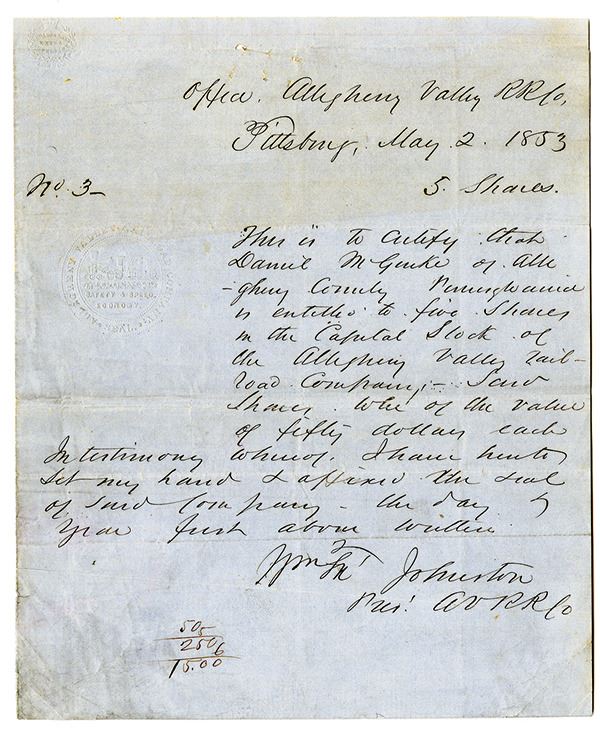 Office. Allegheny Valley RRCo,
Pittsburg, May 2. 1853
No. 3- 5. Shares.
This is to certify that
Daniel McGurke of Alle
-gheny County Pennsylvania
is entitled to five Shares
in the Capital Stock of
the Allegheny Valley rail-
road Company,- Said
Shares to be of the value
of fifty dollars each
In testimony whereof I have hereto
set my hand & affixed the seal
of said Company - the day &
year first above written
Wm F. Johnston
Pres. AVRRCo
50
5
250
6
15.00